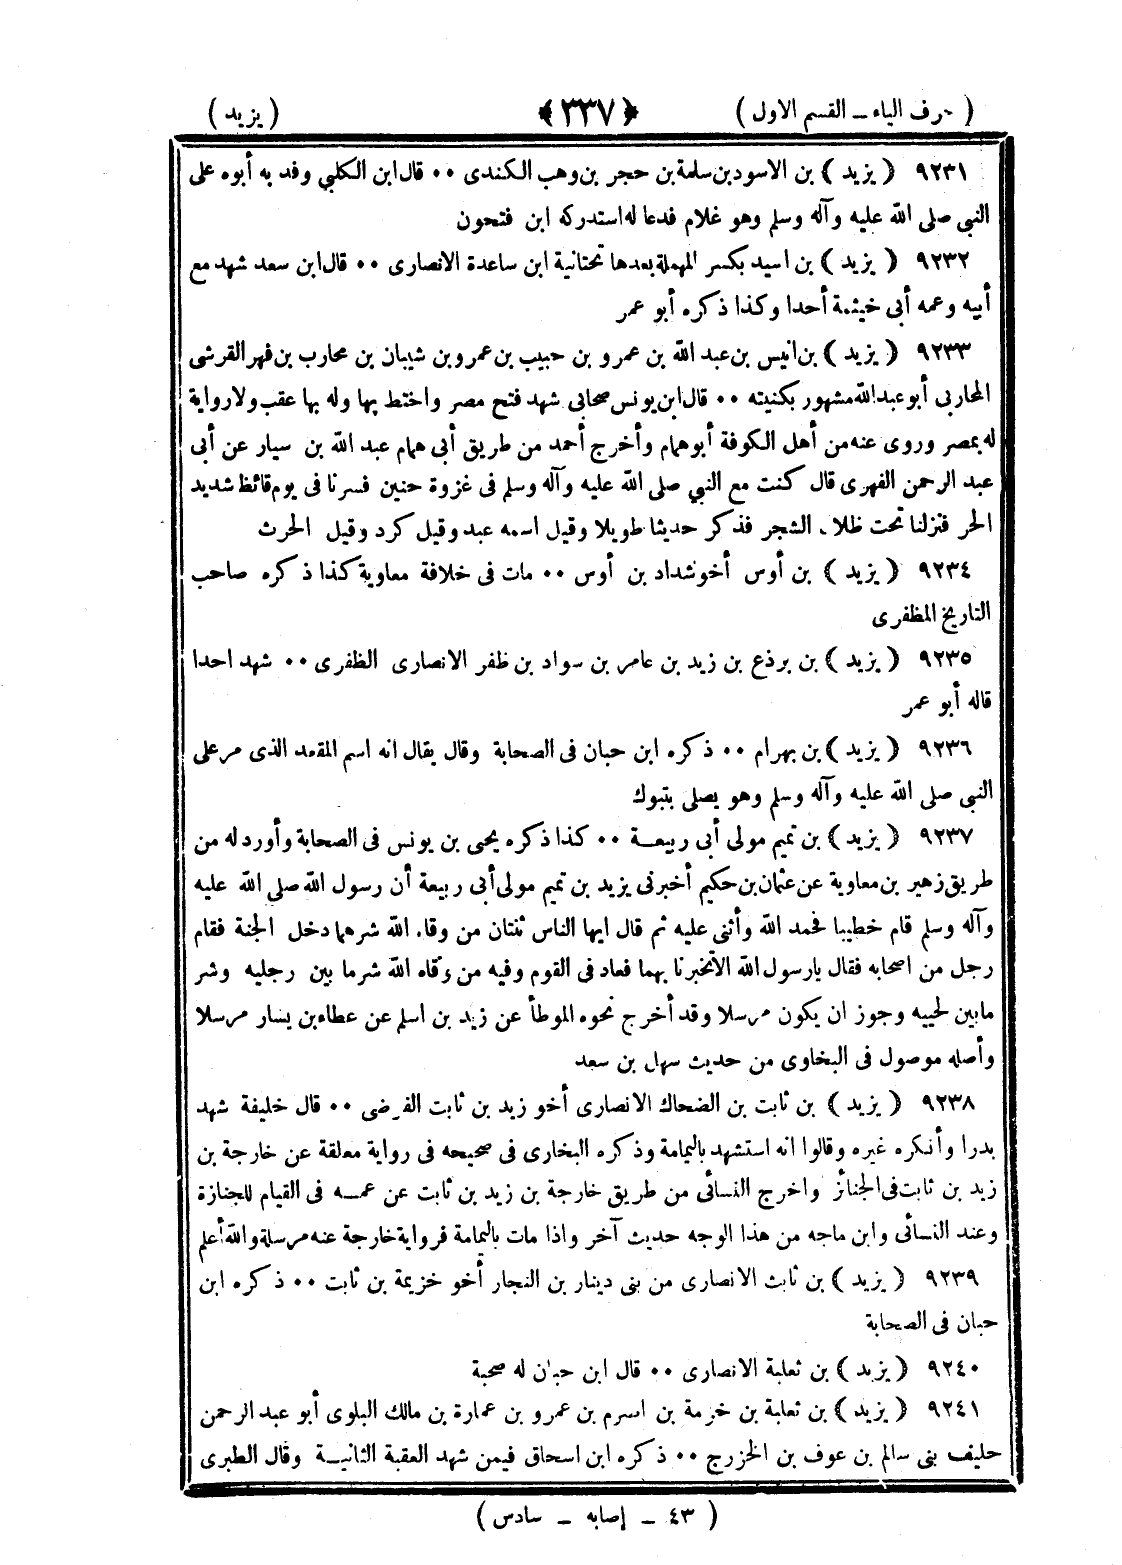 ( حرف الياء ـ القسم الاول ) ﴿٣٣٧﴾ ( يزيد )
٩٢٣١ ( يزيد ) بن الاسود بن سلمة بن حجر بن وهب الكندى ۰۰ قال ابن الكلبي وفد به أبوه على
النبي صلى الله عليه وآله وسلم وهو غلام فدعا له استدركه ابن فتحون
٩٢٣٢ ( يزيد ) بن اسيد بكسر المهملة بعدها تحتانية ابن ساعدة الانصارى ۰۰ قال ابن سعد شهد مع
أبيه وعمه أبي خيثمة أحدا وكذا ذكره أبو عمر
٩٢٣٣ ( يزيد ) بن انيس بن عبد الله بن عمرو بن حبيب بن عمرو بن شيبان بن محارب بن فهر القرشى
المحاربى أبو عبد الله مشهور بكنيته ۰۰ قال ابن يونس صحابى شهد فتح مصر واختط بها وله بها عقب ولا رواية
له بمصر وروى عنه من أهل الكوفة أبو همام وأخرج أحمد من طريق أبى همام عبد الله بن سيار عن أبى
عبد الرحمن الفهرى قال كنت مع النبي صلى الله عليه وآله وسلم فى غزوة حنين فسرنا فى يوم قائظ شديد
الحر فنزلنا تحت ظلال الشجر فذكر حديثا طويلا وقيل اسمه عبد وقيل كرد وقيل الحرث
٩٢٣٤ ( يزيد ) بن أوس أخو شداد بن أوس ۰۰ مات فى خلافة معاوية كذا ذكره صاحب
التاريخ المظفرى
٩٢٣٥ ( يزيد ) بن برذع بن زيد بن عامر بن سواد بن ظفر الانصارى الظفرى ۰۰ شهد احدا
قاله أبو عمر
٩٢٣٦ ( يزيد ) بن بهرام ۰۰ ذكره ابن حبان فى الصحابة وقال يقال انه اسم المقعد الذى مر على
النبي صلى الله عليه وآله وسلم وهو يصلى بتبوك
٩٢٣٧ ( يزيد ) بن تميم مولى أبى ربيعـة ۰۰ كذا ذكره يحيى بن يونس فى الصحابة وأورد له من
طريق زهير بن معاوية عن عثمان بن حكيم أخبرنى يزيد بن تميم مولى أبى ربيعة أن رسول الله صلى الله عليه
وآله وسلم قام خطيبا فحمد الله وأثنى عليه ثم قال ايها الناس ثنتان من وقاه الله شرهما دخل الجنة فقام
رجل من اصحابه فقال يارسول الله الاتخبرنا بهما فعاد فى القوم وفيه من وقاه الله شر ما بين رجليه وشر
مابين لحييه وجوز ان يكون مرسلا وقد أخرج نحوه الموطأ عن زيد بن اسلم عن عطاء بن يسار مرسلا
وأصله موصول فى البخاوى من حديث سهل بن سعد
٩٢٣٨ ( يزيد ) بن ثابت بن الضحاك الانصارى أخو زيد بن ثابت الفرضى ۰۰ قال خليفة شهد
بدرا وأنكره غيره وقالوا انه استشهد باليمامة وذكره البخارى فى صحيحه فى رواية معلقة عن خارجة بن
زيد بن ثابت فى الجنائز واخرج النسائى من طريق خارجة بن زيد بن ثابت عن عمـه فى القيام للجنازة
وعند النسائى وابن ماجه من هذا الوجه حديث آخر واذا مات باليمامة فرواية خارجة عنه مرسلة والله أعلم
٩٢٣٩ ( يزيد ) بن ثابت الانصارى من بنى دينار بن النجار أخو خزيمة بن ثابت ۰۰ ذكره ابن
حبان فى الصحابة
٩٢٤٠ ( يزيد ) بن ثعلبة الانصارى ۰۰ قال ابن حبان له صحبة
٩٢٤١ ( يزيد ) بن ثعلبة بن خزمة بن اسرم بن عمرو بن عمارة بن مالك البلوى أبو عبد الرحمن
حليف بنى سالم بن عوف بن الخزرج ۰۰ ذكره ابن اسحاق فيمن شهد العقبة الثانيـة وقال الطبرى
( ٤٣ ـ إصابه ـ سادس )